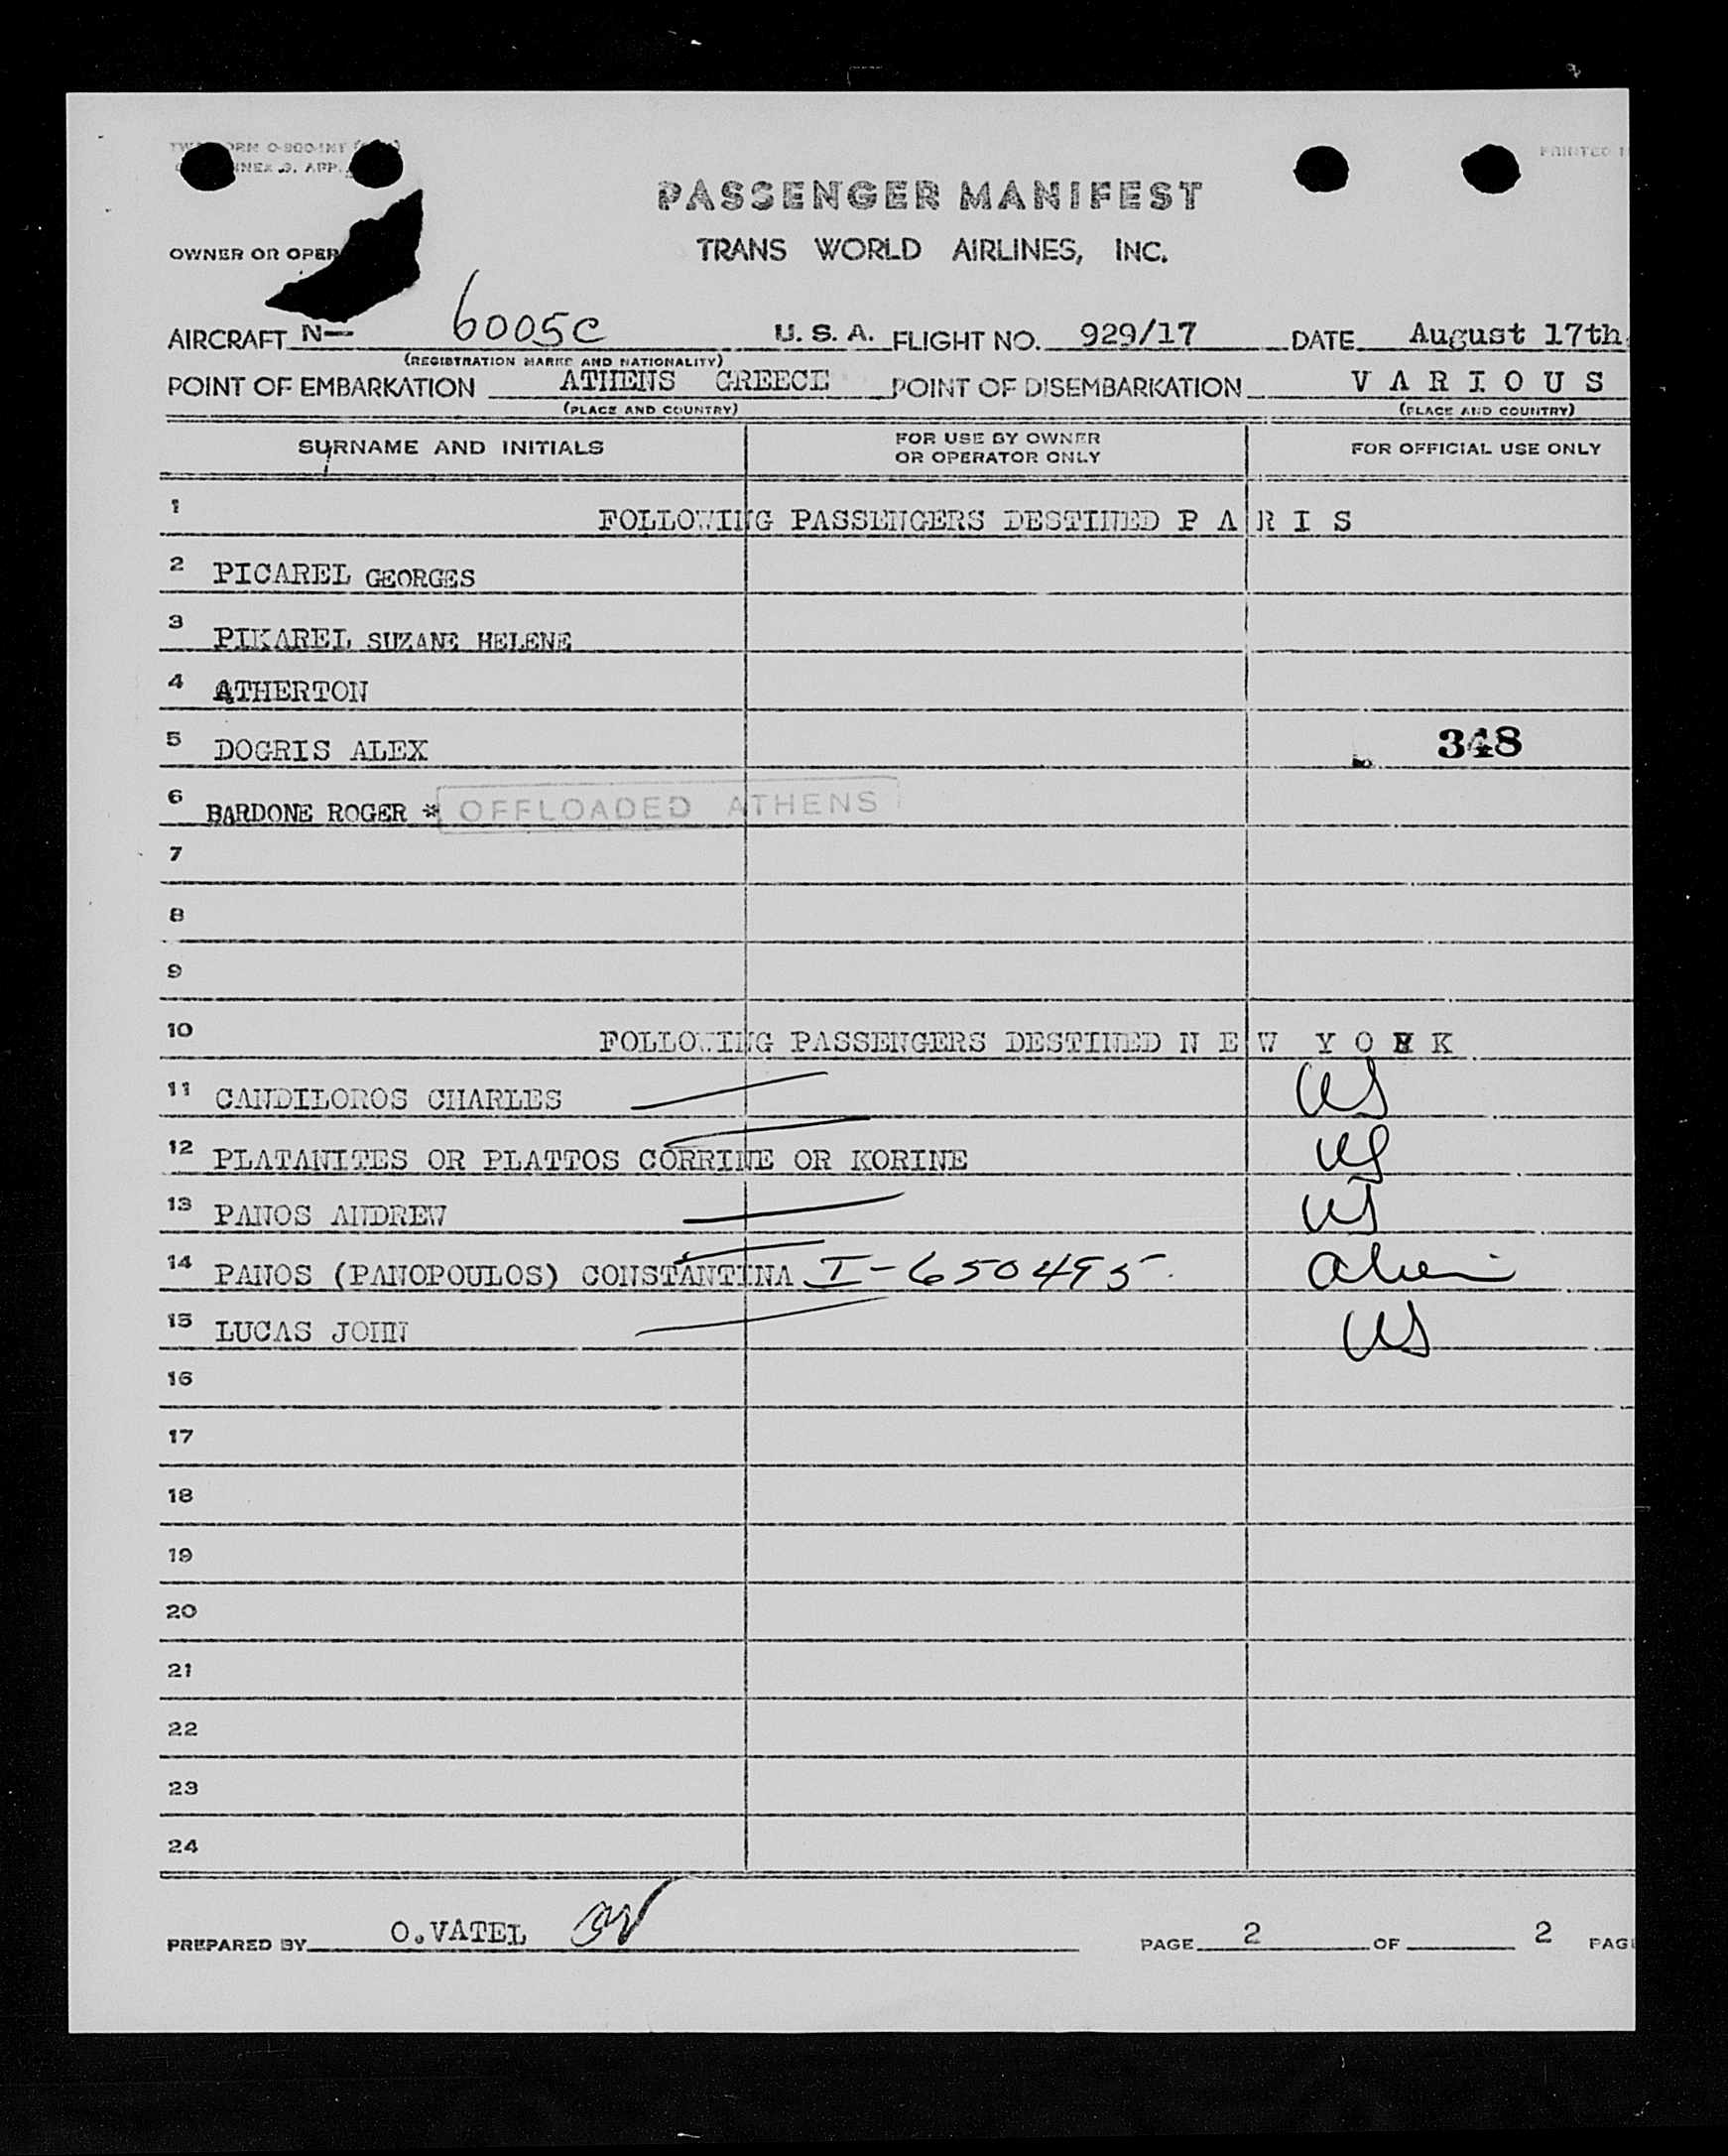 PASSENGER MANIFEST
TRANS WORLD AIRLINES, INC.
OWNER OR OPER
AIRCRAFT N- 6005C U. S. A. FLIGHT NO. 929/17 DATE August 17th
(REGISTRATION MARKS AND NATIONALITY)
POINT OF EMBARKATION ATHENS GREECE POINT OF DISEMBARKATION V A R I O U S
(PLACE AND COUNTRY) (PLACE AND COUNTRY)
SURNAME AND INITIALS FOR USE BY OWNER OR OPERATOR ONLY FOR OFFICIAL USE ONLY
1 FOLLOWING PASSENGERS DESTINED P A R I S
2 PICAREL GEORGES
3 PIKAREL SUZANE HELENE
4 ATHERTON
5 DOGRIS ALEX 348
6 BARDONE ROGER * OFFLOADED ATHENS
7
8
9
10 FOLLOWING PASSENGERS DESTINED N E W Y O R K
11 CANDILOROS CHARLES US
12 PLATANITES OR PLATTOS CORRINE OR KORINE US
13 PANOS ANDREW US
14 PANOS (PANOPOULOS) CONSTANTINA I-650495 alien
15 LUCAS JOHN US
16
17
18
19
20
21
22
23
24
PREPARED BY O.VATEL OV PAGE 2 OF 2 PAG